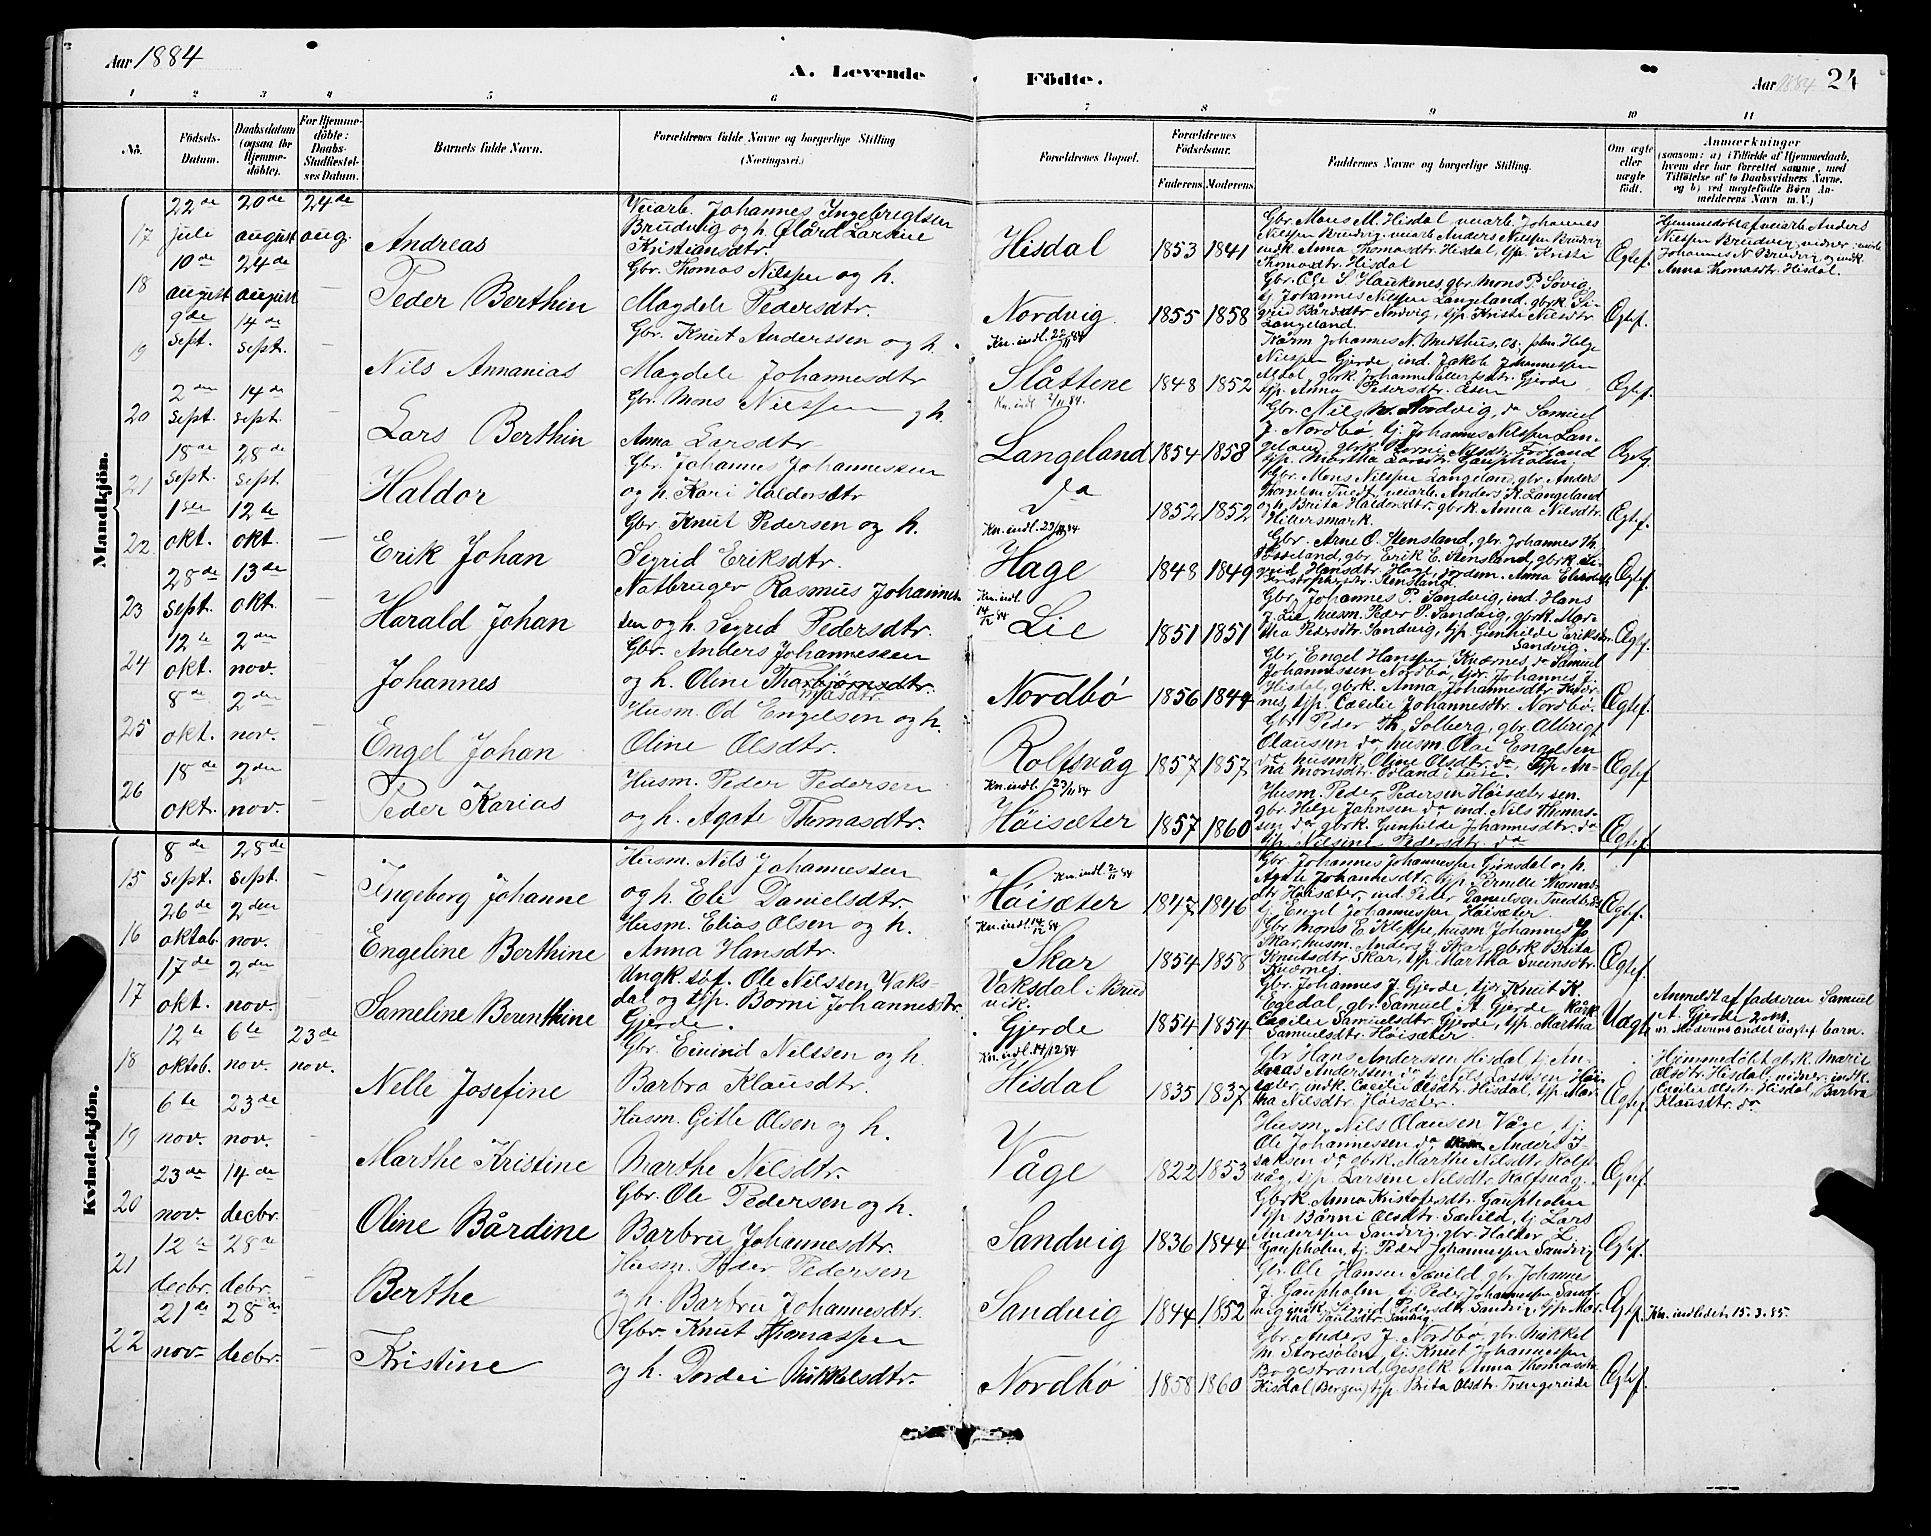 Aar 1884
A. Levende Födte.
Aar 1884 24
1 2 3 4 5 6 7 8 9 10 11
No.
Födsels-Datum.
Daabsdatum (ogsaa for Hjemmedöbte).
For Hjemmedöbte: Daabs-Stadfæstelses Datum.
Barnets fulde Navn.
Forældrenes fulde Navne og borgerlige Stilling (Næringsvei.)
Forældrenes Bopæl.
Forældrenes Födselsaar.
Faderens. Moderens.
Faddernes Navne og borgerlige Stilling.
Om ægte eller uægte födt.
Anmærkninger (saasom: a) i Tilfælde af Hjemmedaab, hvem der har forrettet samme, med Tilföielse af to Daabsvidners Navne. og b) ved uægtefödte Börn Anmelderens Navn m. V.)
Mandkjön.
17 22de juli 20de august 24de aug. Andreas
Veiarb. Johannes Ingebrigtsen
Brudvig og h. Olård Larsine
Kristiansdtr.
Hisdal 1853 1841
Gbr. Mons M. Hisdal, veiarb. Johannes
Nilssen Brudvig, veiarb. Anders Nilssen Brudvig
indk. Anna Thomasdtr. Hisdal, t/p. Kristi
Thomasdtr. Hisdal
Ægtef.
Hjemmedöbt af veiarb. Anders
Nilssen Brudvig, vidner: veiarb.
Johannes N. Brudvig og indk.
Anna Thomasdtr. Hisdal.
18 10de august 24de august – Peder Berthin
Gbr. Thomas Nilssen og h.
Magdele Pedersdtr.
Nordvig 1855 1858
Gbr. Ole S. Haukenes, gbr. Mons P. Sövig,
tj. Johannes Nilssen Langeland, gbrk. Si-
grid Bårdsdtr. Nordvig, t/p. Kristi Nilsdtr.
Langeland.
Ægtef.
19 9de sept. 14de sept. – Nils Annanias
Gbr. Knut Anderssen og h.
Magdele Johannesdtr
Kn. indl. 22/11 84
Slåttene 1848 1852
Nilssen Gjerde, ind. Jakob Johannessen
t/p. Anna Pedersdtr. Åsen
Ægtef.
20 2den sept. 14de sept. – Lars Berthin
Gbr. Mons Nilssen og h.
Anna Larsdtr
Kn. indl. 2/11 84.
Langeland 1854 1858
Gbr. Nils N. Nordvig, do Samuel
J. Nordbö, tj. Johannes Nilssen Lan-
geland, gbrk. Borni Nilsdtr. Förland
t/p. Martha Larsdtr. Gaupholm
Ægtf.
21 18de sept. 28de sept. Haldor
Gbr. Johannes Johannessen
og h. Kari Haldorsdtr
do 1852 1852
Gbr. Mons Nilssen Langeland, gbr. Anders
Tvedt, veiarb. Anders K. Langeland
og h. Brita Haldorsdtr. gbrk. Anna Nilsdtr.
Ægtef.
22 1ste okt. 12te okt. – Erik Johan
Gbr. Knut Pedersen og h.
Segrid Eriksdtr.
Kn. indl. 23/11 84
Hage 1848 1849
Gbr. Arne O. Stensland, gbr. Johannes Th.
Gbr. Erik E. Stensland, gbrk. Si-
grid Hansdtr. Hage, jordem. Anna
Stensland
Ægtef.
23 28de sept. 13de okt. – Harald Johan
Notbruger Rasmus Johannes-
sen og h. Segrid Pedersdtr.
Kn. indl. 14/12 84
Lie 1851 1851
Gbr. Johannes P. Sandvig, ind. Hans
J. Lie, husm. Peder P. Sandvig, gbrk. Mar-
tha Pedersdtr. Sandvig, t/p. Gunhilde Eriksdtr.
Sandvig.
Ægtef.
24 12te okt. 2den nov. – Johannes
Gbr. Anders Johannessen
og h. Oline Thorbjörnsdtr.
masdtr
Nordbö 1856 1844
Gbr. Engel Hanssen Kværnes, do Samuel
Johannessen Nordbö, tjdr. Johannes J.
Hisdal, gbrk. Anna Johannesdtr. Kvær-
nes, t/p. Cæcilie Johannesdtr. Nordbö.
Ægtef.
25 8de okt. 2den nov. – Engel Johan
Husm. Od Engelsen og h.
Oline Olsdtr.
Rolfsvåg 1857 1857
Gbr. Peder Th. Solberg, gbr. Albrigt
Olaussen do, husm. Olai Engelsen
do, husmk. Oline Olsdtr. do, t/p. An-
na Monsdtr.
Ægtef.
26 18de okt. 2den nov. – Peder Karias
Husm. Peder Pedersen
og h. Agate Thomasdtr.
Kn. indl. 23/11 84
Höisæter 1857 1860
Husm. Peder Pedersen Höisæter sen.
gbr. Helge Johnsen do, ind. Nils Thomas-
sen do, gbrk. Gunhilde Johannesdtr. do
t/p. Nilsine Pedersdtr. do
Ægtef.
Kvindekjön.
15 8de sept. 28de sept. Ingeborg Johanne
Husm. Nils Johannessen
og h. Eli Danielsdtr.
Kn. indl. 2/11 84
Höisæter 1847 1846
Gbr. Johannes Johannessen Gjönsdal og h.
Agate Johannesdtr. t/p. Pernille Thomas-
dtr. Höisæter, ind. Peter Danielsen
tj. Engel Johannessen Höisæter.
Ægtef.
16 26de oktob. 2den nov. Engeline Berthine
Husm. Elias Olsen og h.
Anna Hansdtr.
Kn. indl. 14/12 84
Skar 1854 1858
Gbr. Mons E. Kleppe, husm. Johannes
Skar, husm. Anders J. Skar, gbrk. Brita
Knutsdtr. Skar, t/p. Martha Sveinsdtr.
Kværnes.
Ægtef.
17 17de okt. 2den nov. Sameline Berenthine
Ungk. söf. Ole Nilssen Vaks-
dal og t/p. Borni Johannesdtr.
Gjerde.
Vaksdal i Brud
vik.
Gjerde 1854 1854
Gbr. Johannes J. Gjerde, tjdr. Knut K.
Egedal, gbr. Samuel A. Gjerde, kårk.
Cæcilie Samuelsdtr. Gjerde, t/p. Martha
Samuelsdtr. Höisæter.
Uægte
Anmeldt af fadderen Samuel
A. Gjerde
Moderens andet uægtef. barn.
18 12te oktob. 6te nov. 23de nov. Nelle Josefine
Gbr. Eivind Nelssen og h.
Barbra Klausdtr.
Kn. indl. 14/12 84
Hisdal 1835 1837
Gbr. Hans Anderssen Hisdal, tj. An-
dreas Anderssen do, tj. Nils Larssen Höi-
sæter, indk. Cæcilie Olsdtr. Hisdal, t/p. Mar-
tha Nilsdtr. Höisæter.
Ægtef.
Hjemmedöbt gbrk. Marie
Olsdtr. Hisdal, vidner: indk.
Cecilie Olsdtr. Hisdal, Barbra
Klausdtr. do
19 6te nov. 23de nov. – Marthe Kristine
Husm. Gitle Olsen og h.
Marthe Nelsdtr.
Våge 1822 1853
Husm. Nils Olausen Våge, tj.
Ole Johannessen do, Anders I-
saksen do, gbrk. Marthe Nilsdtr. Rolfs-
våg, t/p. Larsine Nilsdtr. Rolfsvåg.
20 23de nov. 14de decbr. – Oline Bårdine
Gbr. Ole Pedersen og h.
Barbru Johannesdtr.
Sandvig 1836 1844
Gbrk. Anna Kristofersdtr. Gaupholm
t/p. Bårni Olsdtr. Sævild, tj. Lars
Anderssen Sandvig, gbr. Haldor L.
Gaupholm, tj. Peder Johannessen Sandvig
Ægtef.
21 12te decbr. 28de debr. – Berthe
Husm. Peder Pedersen
og h. Barbru Johannesdtr.
Sandvig 1844 1852
Gbr. Ole Hansen Sævild, gbr. Johannes
J. Gaupholm, tj. Peder Johannessen Sand-
vig, indk. Sigrid Pedersdtr. Sandvig, t/p. Mar-
tha Paulsdtr. Sandvig
Ægtef.
Kn. indledet 15.3.85.
22 21de nov. 28de decbr. – Kristine
Gbr. Knut Thomassen
og h. Dordei Mikkelsdtr.
Nordbö 1858 1860
Gbr. Anders J. Nordbö, gbr. Mikkel
M. Storesölen, tj. Knut Johannessen
Bogestrand, geselk. Anna Thomasdtr
Hisdal (Bergen), t/p. Brita Olsdtr. Trengereide
Ægtef.